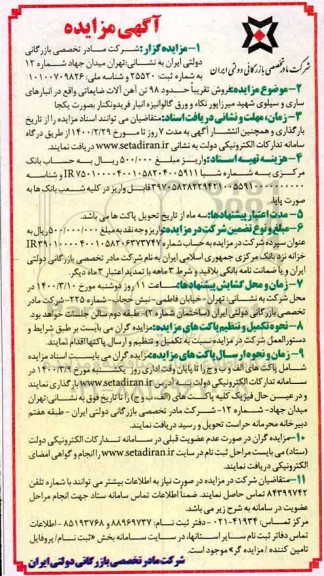 آگهی مزایده
شرکت مادر تخصصی بازرگانی دولتی ایران
۱- مزایده گزار: شرکت مادر تخصصی بازرگانی
دولتی ایران به نشانی: تهران میدان جهاد شماره ۱۲
به شماره ثبت: ۲۵۵۲۰ و شناسه ملی: ۱۰۱۰۰۷۰۹۸۲۶
۲- موضوع مزایده: فروش تقریباً حدود ۹۸ تن آهن آلات ضایعاتی واقع در انبارهای
ساری و سیلوی شهید میرزاپور نکاء و ورق گالوانیزه انبار فریدونکنار بصورت یکجا
۳- زمان، مهلت و نشانی دریافت اسناد: متقاضیان می توانند اسناد مزایده را از تاریخ
بارگذاری و همچنین انتشار آگهی به مدت ۷ روز تا مورخ ۱۴۰۰/۲/۲۹ از طریق درگاه
سامانه تدارکات الکترونیکی دولت به نشانی www.setadiran.ir دریافت نمایند.
۴- هزینه تهیه اسناد: واریز مبلغ ۵۰۰/۰۰۰ ریال به حساب بانک
مرکزی به شماره شبا و شناسه
قابل واریز در کلیه شعب بانک ها به
صورت پایا.
۵- مدت اعتبار پیشنهادها: سه ماه از تاریخ تحویل پاکت ها می باشد.
۶- مبلغ و نوع تضمین شرکت در مزایده: واریز وجه نقد به مبلغ ریال به
عنوان سپرده شرکت در مزایده به حساب شماره
خزانه نزد بانک مرکزی جمهوری اسلامی ایران به نام شرکت مادر تخصصی بازرگانی دولتی
ایران و یا ضمانت نامه بانکی بلاقید و شرط ۳ ماهه با تمدید اعتبار ۳ ماه دیگر.
۷- زمان و محل گشایش پیشنهادها: ساعت ۱۱ روز دوشنبه مورخ ۱۴۰۰/۳/۱۰ در
محل شرکت به نشانی: تهران- خیابان فاطمی- نبش حجاب- شماره ۲۲۵- شرکت مادر
تخصصی بازرگانی دولتی ایران (ساختمان شماره ۲)- طبقه دوم سالن جلسات خواهد بود.
۸- نحوه تکمیل و تنظیم پاکت های مزایده: مزایده گران می بایست بر طبق شرایط و
دستورالعمل شرکت در مزایده نسبت به تکمیل و تنظیم و ارسال پاکتها اقدام نمایند.
۹- زمان و نحوه ارسال پاکت های مزایده: مزایده گران می بایست اسناد مزایده
شامل پاکت های الف و ب و ج را تا پایان وقت اداری روز یکشنبه مورخ ۱۴۰۰/۳/۹ در
سامانه تدارکات الکترونیکی دولت به نشانی www.setadiran.ir بارگذاری نمایند
و در عین حال فیزیک کلیه پاکت های (الف، ب و ج) را تا تاریخ فوق به نشانی: تهران
میدان جهاد- شماره ۱۲- شرکت مادر تخصصی بازرگانی دولتی ایران - طبقه هفتم
دبیرخانه محرمانه حراست تحویل و رسید دریافت نمایند.
۱۰- مزایده گران در صورت عدم عضویت قبلی در سامانه تدارکات الکترونیکی دولت
(ستاد) می بایست مراحل ثبت نام در سایت www.setadiran.ir را انجام و گواهی امضای
الکترونیکی دریافت نمایند.
۱۱- متقاضیان شرکت در مزایده در صورت نیاز به اطلاعات بیشتر می توانند با شماره تلفن
۸۴۳۹۹۷۴۲ تماس حاصل نمایند. ضمنا اطلاعات تماس سامانه ستاد جهت انجام مراحل
عضویت در سامانه به شرح زیر می باشد.
مرکز تماس: ۴۱۹۳۴-۰۲۱ - دفتر ثبت نام: ۸۸۹۶۹۷۳۷ و ۸۵۱۹۳۷۶۸ - اطلاعات
تماس دفاتر ثبت نام سایر استانها، در سایت سامانه بخش «ثبت نام/ پروفایل
تامین کننده / مزایده گر» موجود است.
شرکت مادر تخصصی بازرگانی دولتی ایران